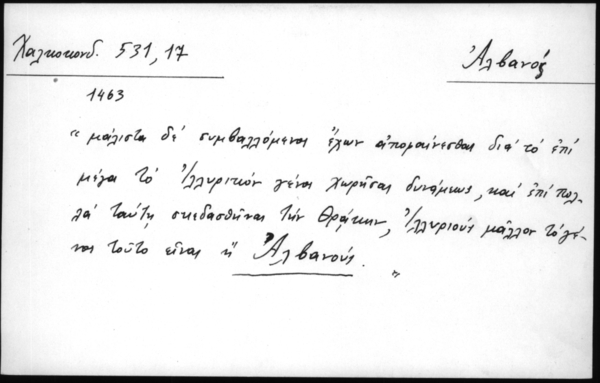 Χαλκοκονδ. 531,17
Ἀλβανός
1463
« μάλιστα δέ συμβαλλόμενοι ἔχων ἀποφαίνεσθαι διά τό ἐπί
μέγα τό Ἰλλυρικόν γένος χωρῆσαι δυνάμεως, καί ἐπί πολ-
λά ταύτῃ σκεδασθῆναι τήν Θράκην, Ἰλλυριούς μᾶλλον τό γέ-
νος τοῦτο εἶναι ἤ Ἀλβανούς. »